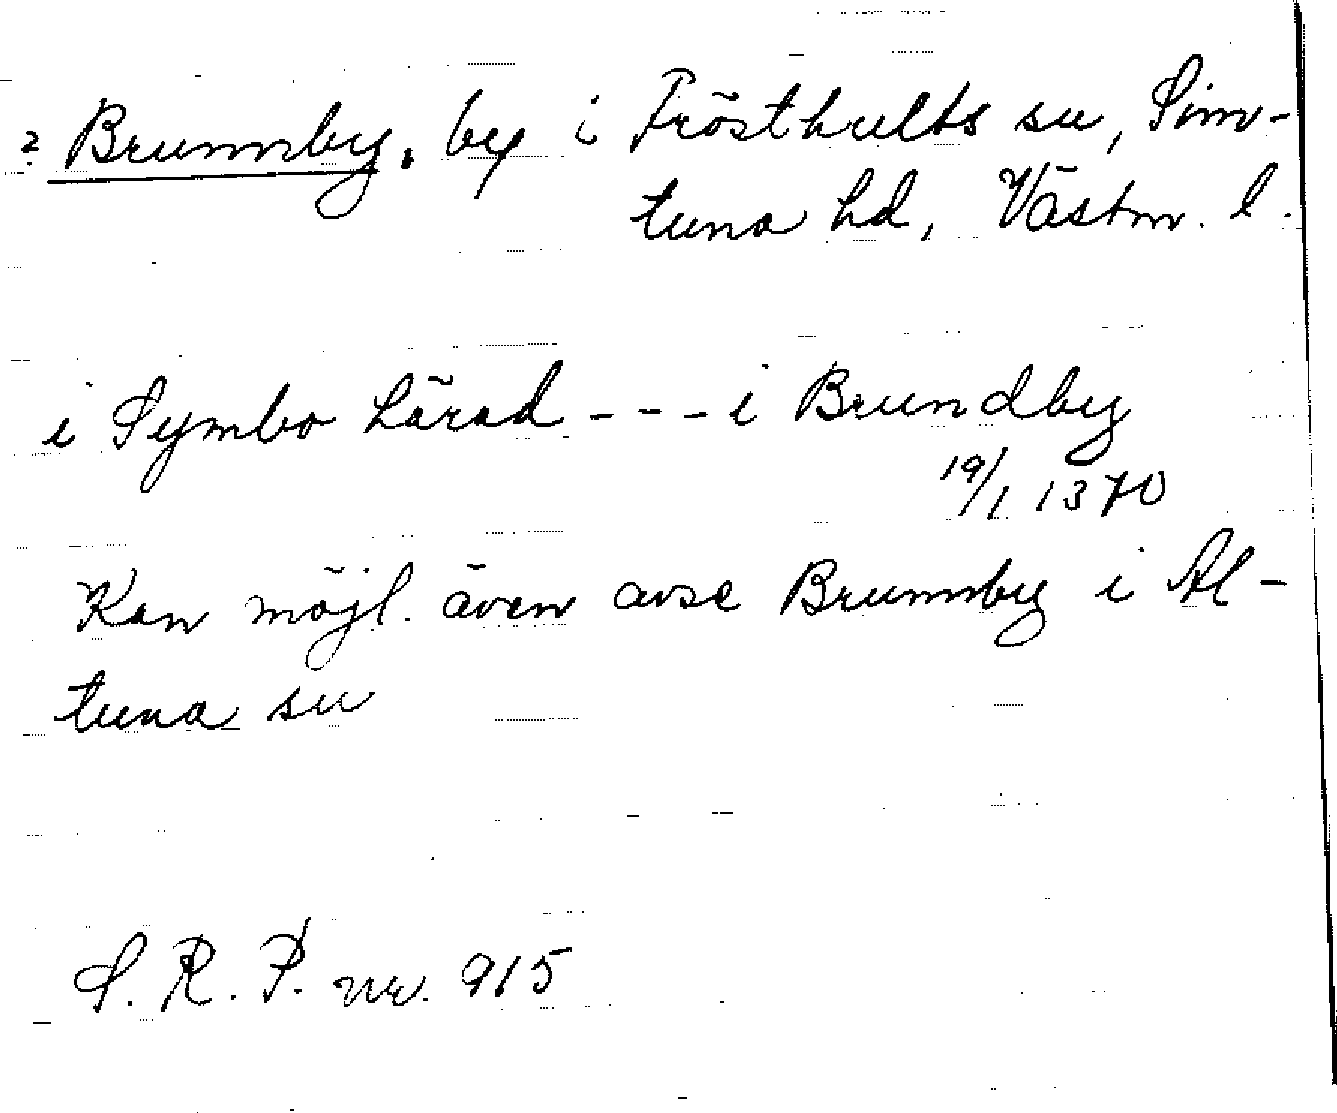 ? Brunnby, by i Frösthults sn, Sim-
tuna hd, Västm. l.
i Symbo härad - - - i Brundby
19/1 1370
Kan möjl. även avse Brunnby i Al-
tuna sn
S. R. P. nr. 915